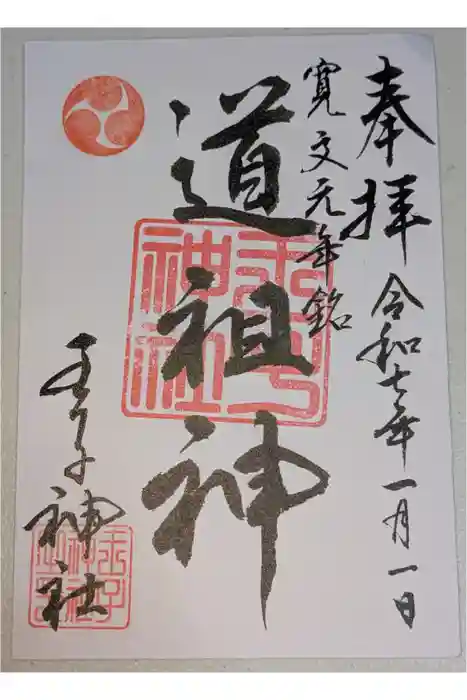 奉拝
令和七年一月一日
寛文元年銘
道祖神
王子神社
王子神社